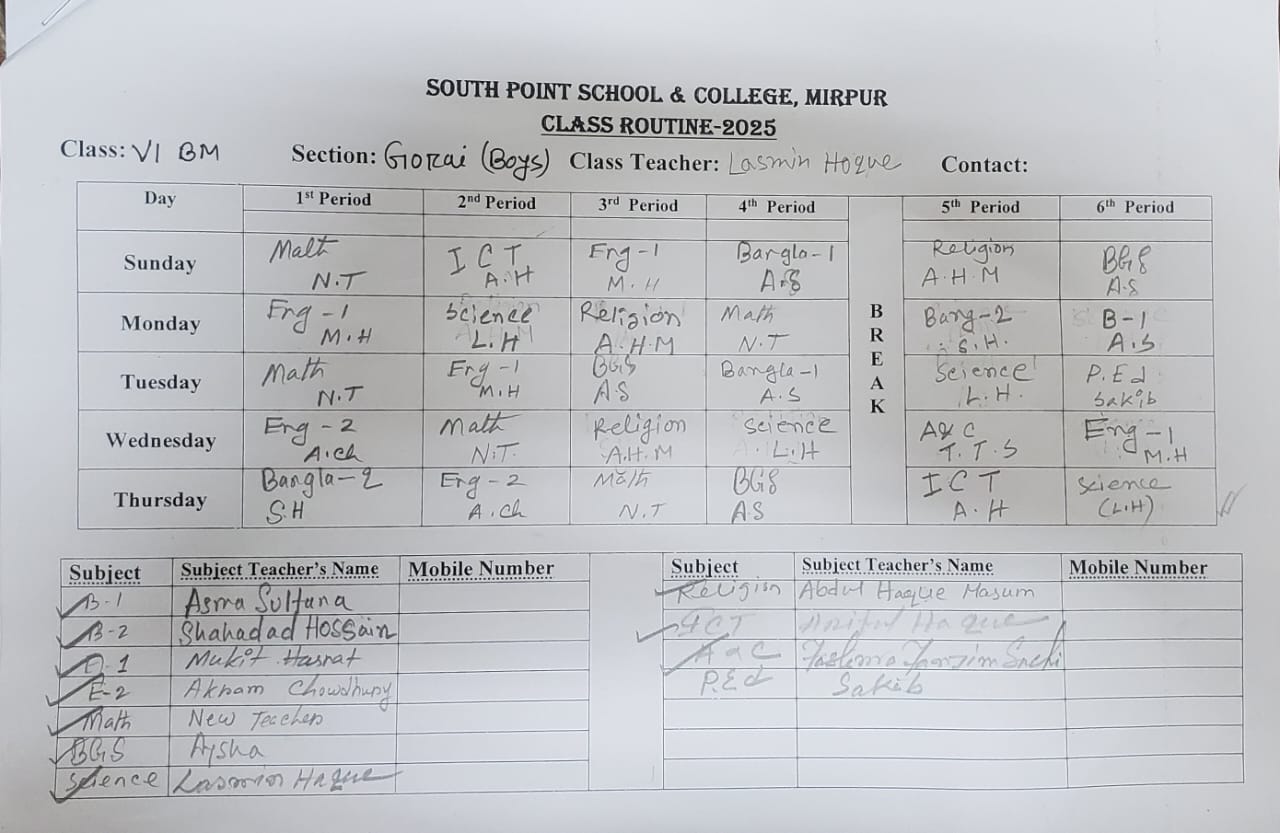 SOUTH POINT SCHOOL & COLLEGE, MIRPUR
CLASS ROUTINE-2025
Class: VI BM Section: Gorai (Boys) Class Teacher: Lasmin Hoque Contact:
Day 1st Period 2nd Period 3rd Period 4th Period BREAK 5th Period 6th Period
Sunday Math ICT Eng-1 Bangla-1 Religion BGS
N.T A.H M.H A.S A.H.M A.S
Monday Eng-1 Science Religion Math Bang-2 B-1
M.H L.H A.H.M N.T S.H. A.S
Tuesday Math Eng-1 BGS Bangla-1 Science P.Ed
N.T M.H A.S A.S L.H. Sakib
Wednesday Eng-2 Math Religion Science A&C Eng-1
A.ch N.T. A.H.M L.H T.T.S M.H
Thursday Bangla-2 Eng-2 Math BGS ICT Science
S.H A.ch N.T A.S A.H (L.H)
Subject Subject Teacher's Name Mobile Number Subject Subject Teacher's Name Mobile Number
B-1 Asma Sultana Religion Abdul Haque Masum
B-2 Shahadad Hossain ICT Haque
E-1 Mukit Hasnat A&C
E-2 Aknam Chowdhury P.Ed Sakib
Math New Teacher
BGS Aysha
Science Lasmin Haque